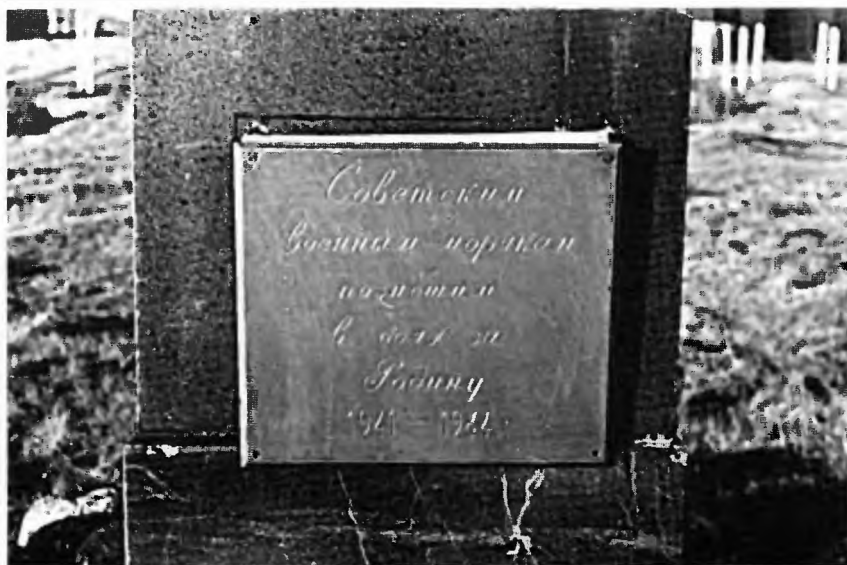 Советским
военным морякам
погибшим
в боях за
Родину
1941 – 1944